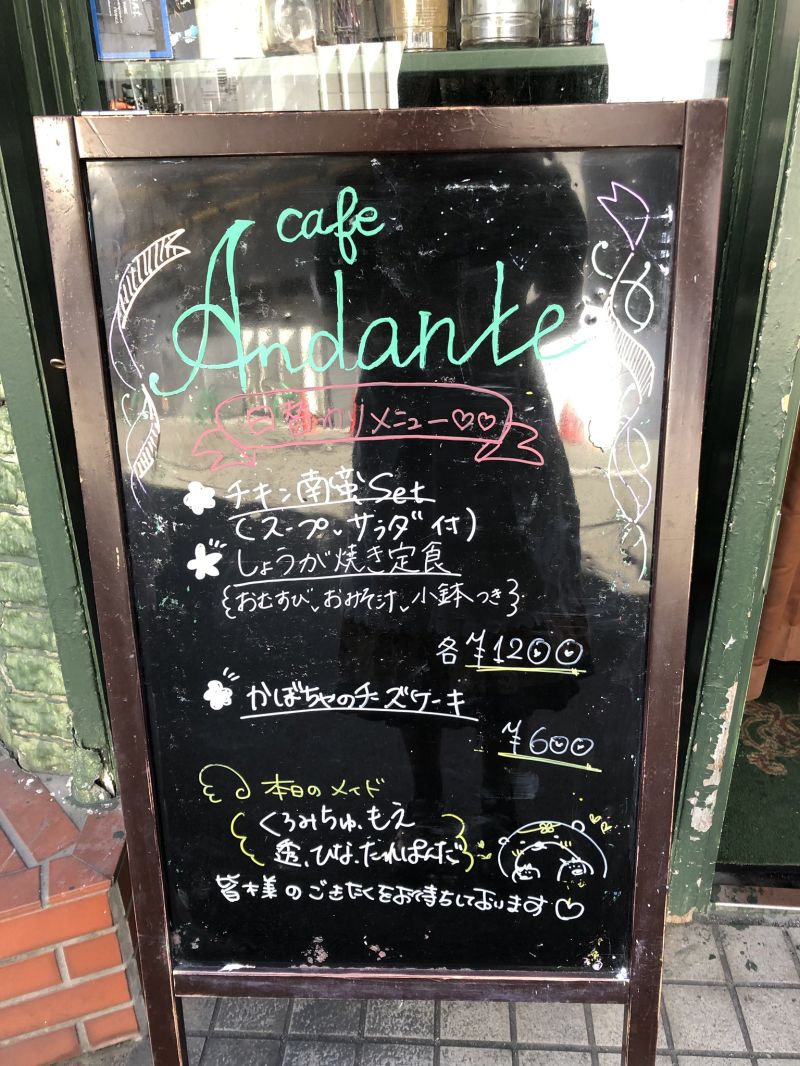 cafe
Andante
日替わりメニュー♡♡
チキン南蛮Set
(スープ、サラダ付)
しょうが焼き定食
{おむすび、おみそ汁、小鉢つき}
各¥1200
かぼちゃのチーズケーキ
¥600
本日のメイド
くろみちゅ、もえ
ひな、たれぱんだ
皆様のごきたくをお待ちしております♡